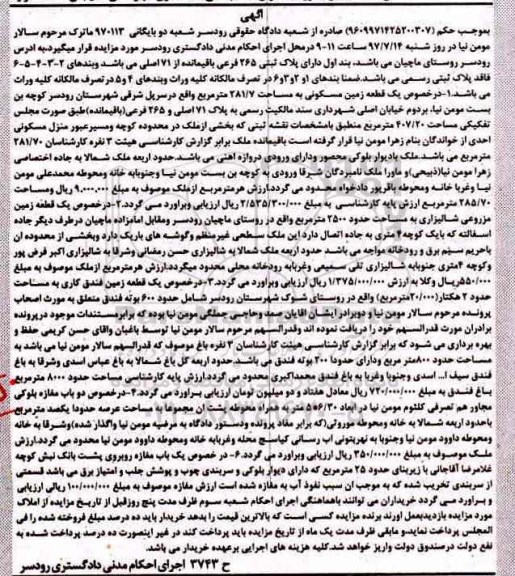 آگهی
بموجب حکم (۹۶۰۹۹۷۱۴۲۵۲۰۰۳۰۷) صادره از شعبه دادگاه حقوقی رودسر شعبه دو بایگانی ۹۷۰۱۱۳ ماترک مرحوم سالار
مومن نیا در روز شنبه ۹۷/۷/۱۴ ساعت ۱۱-۹ درمحل اجرای احکام مدنی دادگستری رودسر مورد مزایده قرار میگیرد،به ادرس
رودسر روستای ماچیان می باشد، بند اول دارای پلاک ثبتی ۲۶۵ فرعی باقیمانده از ۷۱ اصلی می باشد وبندهای ۲-۳-۴-۵-۶
فاقد پلاک ثبتی رسمی می باشد.ضمنا بندهای ۱و ۲و۳و۶ در تصرف مالکانه کلیه وراث وبندهای ۴ و۵ در تصرف مالکانه کلیه وراث
می باشد.۱-درخصوص یک قطعه زمین مسکونی به مساحت ۲۸۱/۷ مترمربع واقع درسرپل شرقی شهرستان رودسر کوچه بن
بست مومن نیا، بردوم خیابان اصلی شهرداری سند مالکیت رسمی به پلاک ۷۱ اصلی و ۲۶۵ فرعی(باقیمانده)طبق صورت مجلس
تفکیکی مساحت ۴۰۷/۲۰ مترمربع منطبق بامشخصات نقشه ثبتی که بخشی ازملک در محدوده کوچه ومسیرعبور منزل مسکونی
احدی از خواندگان بنام زهرا مومن نیا قرار گرفته است باقیمانده ملک برابر گزارش کارشناسی هیئت ۳ نفره کارشناسان ۲۸۱/۷۰
مترمربع می باشد.ملک بادیوار بلوکی محصور ودارای ورودی دروازه آهنی می باشد.حدود اربعه ملک شمالا به جاده اختصاصی
زهرا مومن نیا(ذبیحی)و ماورا ملک نامبردگان شرقا ورودی به کوچه بن بست مومن نیا وجنوبابه خانه ومحوطه محمدعلی مومن
نیا وغربا خانه ومحوطه باقرپور دادخواه محدود می گردد.ارزش هرمترمربع ازملک موصوف به مبلغ ۹.۰۰۰.۰۰۰ ریال ومساحت
۲۸۵/۷۰ مترمربع ارزش پایه کارشناسی به مبلغ ۲/۵۳۵/۳۰۰/۰۰۰ ریال ارزیابی وبراورد می گردد.۲-درخصوص یک قطعه زمین
مزروعی شالیزاری به مساحت حدود ۲۵۰۰ مترمربع واقع در روستای ماچیان رودسر ومقابل امامزاده ماچیان درطرف دیگر جاده
اسفالته که بایک کوچه۴ متری به جاده اتصال دارد این ملک سطحی غیرمنظم وگوشه های باریک دارد وبخشی از محدوده ان
باحریم سیم برق و رودخانه مواجه می باشد حدود اربعه ملک شمالا به شالیزاری حسن رمضانی وشرقا به شالیزاری اکبر فرض پور
وکوچه ۴متری جنوبابه شالیزاری تقی سمیعی وغربابه رودخانه محلی محدود میگردد.ارزش هرمترمربع ازملک موصوف به مبلغ
۵۵۰/۰۰۰ریال وکلا به ارزش ۱/۳۷۵/۰۰۰/۰۰۰ ریال ارزیابی وبراورد می گردد.۳-درخصوص یک قطعه زمین فندق کاری به مساحت
حدود ۲ هکتار(۲۰/۰۰۰مترمربع) واقع در روستای شوک شهرستان رودسر شامل حدود ۶۰۰ بوته فندق متعلق به مورث اصحاب
پرونده مرحوم سالار مومن نیا و دوبرادر ایشان اقایان صمد وحاجی جملگی مومن نیا بوده که برابرمستندات موجود درپرونده
برادران مورث قدرالسهم خود را دریافت نموده اند وقدرالسهم مرحوم سالار مومن نیا توسط باغبان واقای حسن کریمی حفظ و
بهره برداری می شود که برابر گزارش کارشناسی هیئت کارشناسان ۳ نفره باغ موصوف که قدرالسهم سالار مومن نیا می باشد به
مساحت حدود ۸۰۰۰متر مربع ودارای حدودا ۳۰۰ بوته فندق می باشد.حدود اربعه کل باغ شمالا به باغ عباس اسدی وشرقا به باغ
فندق سیف ا... اسدی وجنوبا وغربا به باغ فندق محمداکبری محدود می گردد.ارزش پایه کارشناسی مساحت حدود ۸۰۰۰ مترمربع
باغ فندق به مبلغ ۷۲۰/۰۰۰/۰۰۰ ریال معادل هفتاد و دو میلیون تومان ارزیابی براورد می گردد.۴-درخصوص دو باب مغازه بلوکی
مجاور هم تصرفی کلثوم مومن نیا در ابعاد ۵۰۶/۳۰ متر باحیاط محوطه پشت ان مجموعا با مساحت عرصه حدودا یکصد مترمربع
باحدود اربعه شمالا به خانه ومحوطه موروثی(که برابر مفاد پرونده ودستور دادگاه به مرضیه مومن نیا واگذار شده)وشرقا به خانه
ومحوطه داوود مومن نیا وجنوبا به نهربتونی اب رسانی کیاسج محله وغربابه خانه ومحوطه داوود مومن نیا محدود می گردد.ارزش
ملک موصوف به مبلغ ۳۵۰/۰۰۰/۰۰۰ ریال ارزیابی وبراورد می گردد.۶-در خصوص یک باب مغازه روبروی پشت بانک نبش کوچه
غلامرضا آقاجانی با زیربنای حدود ۲۵ مترمربع که دارای دیوار بلوکی و سربندی چوب و پوشش جلب و امتیاز برق می باشد قسمتی
از سربندی تخریب شده که به موجب ان سبب نفوذ آب به مغازه شده است ارزش مغازه موصوف به مبلغ ۱۰۰/۰۰۰/۰۰۰ ریالی ارزیابی
و براورد می گردد خریداران می توانند باهماهنگی اجرای احکام شعبه سوم ظرف مدت پنج روزقبل از تاریخ مزایده از املاک
مورد مزایده بازدیدبعمل اورند برنده مزایده کسی است که بالاترین قیمت را بدهد خریدار باید ده درصد مبلغ فروخته شده را فی
المجلس پرداخت نماید،و مابقی ظرف مدت یک ماه از تاریخ مزایده باید پرداخت کند در غیر اینصورت ده درصد پرداخت شده به
نفع دولت درصندوق دولت واریز خواهد شد.کلیه هزینه های اجرایی برعهده خریدار می باشد.
ح ۳۷۴۳ اجرای احکام مدنی دادگستری رودسر